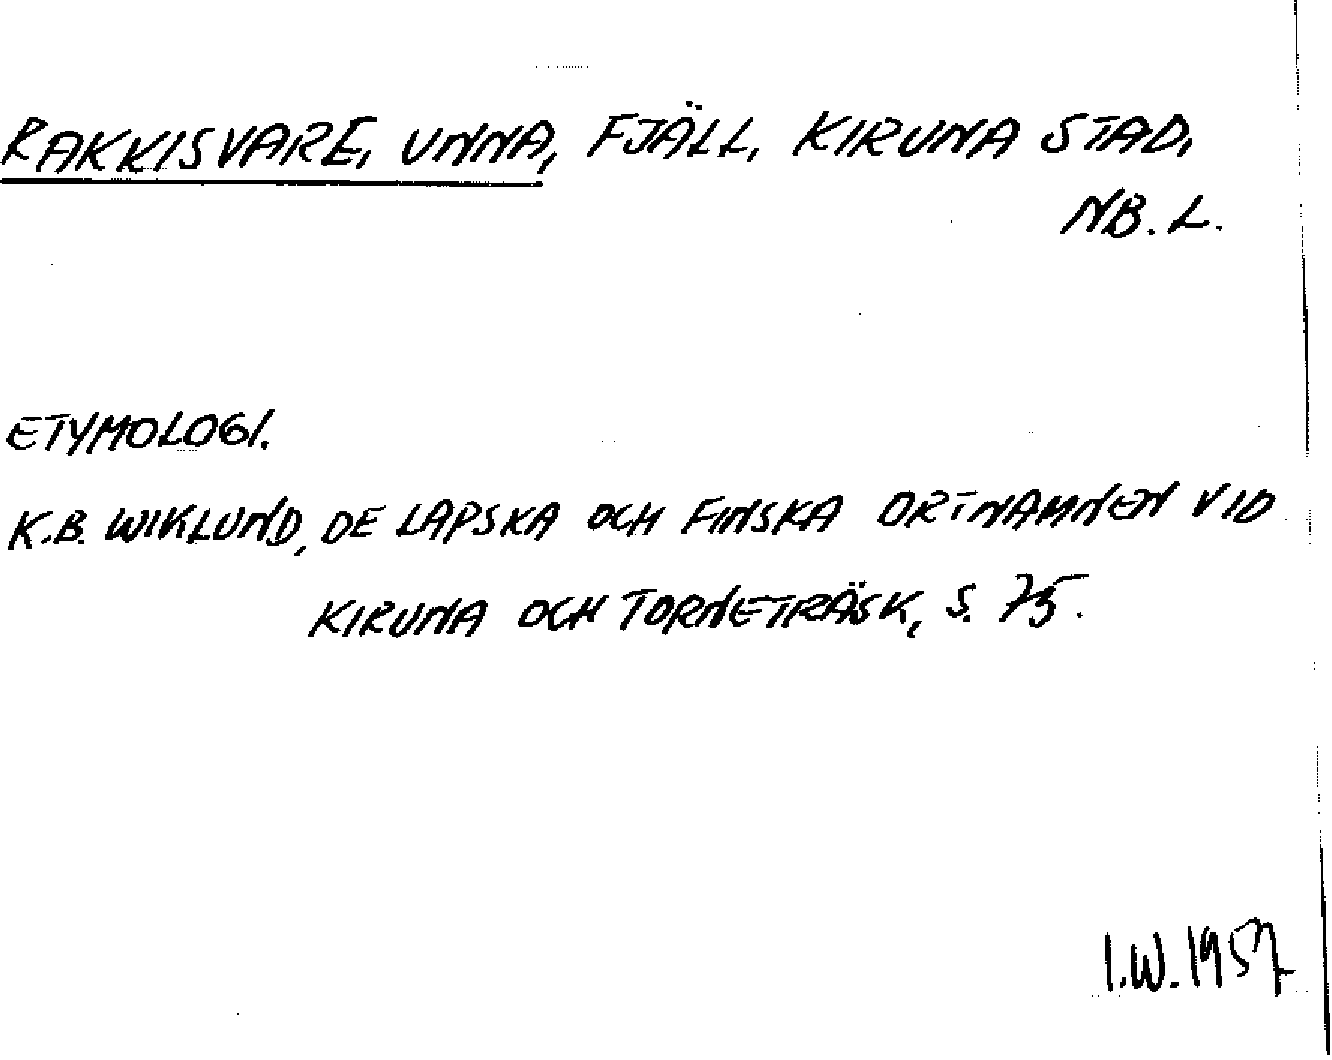 RAKKISVARE, UNNA, FJÄLL, KIRUNA STAD,
NB. L.
ETYMOLOGI.
K.B. WIKLUND, DE LAPSKA OCH FINSKA ORTNAMNEN VID
KIRUNA OCH TORNETRÄSK, S. 75.
I.W. 1957